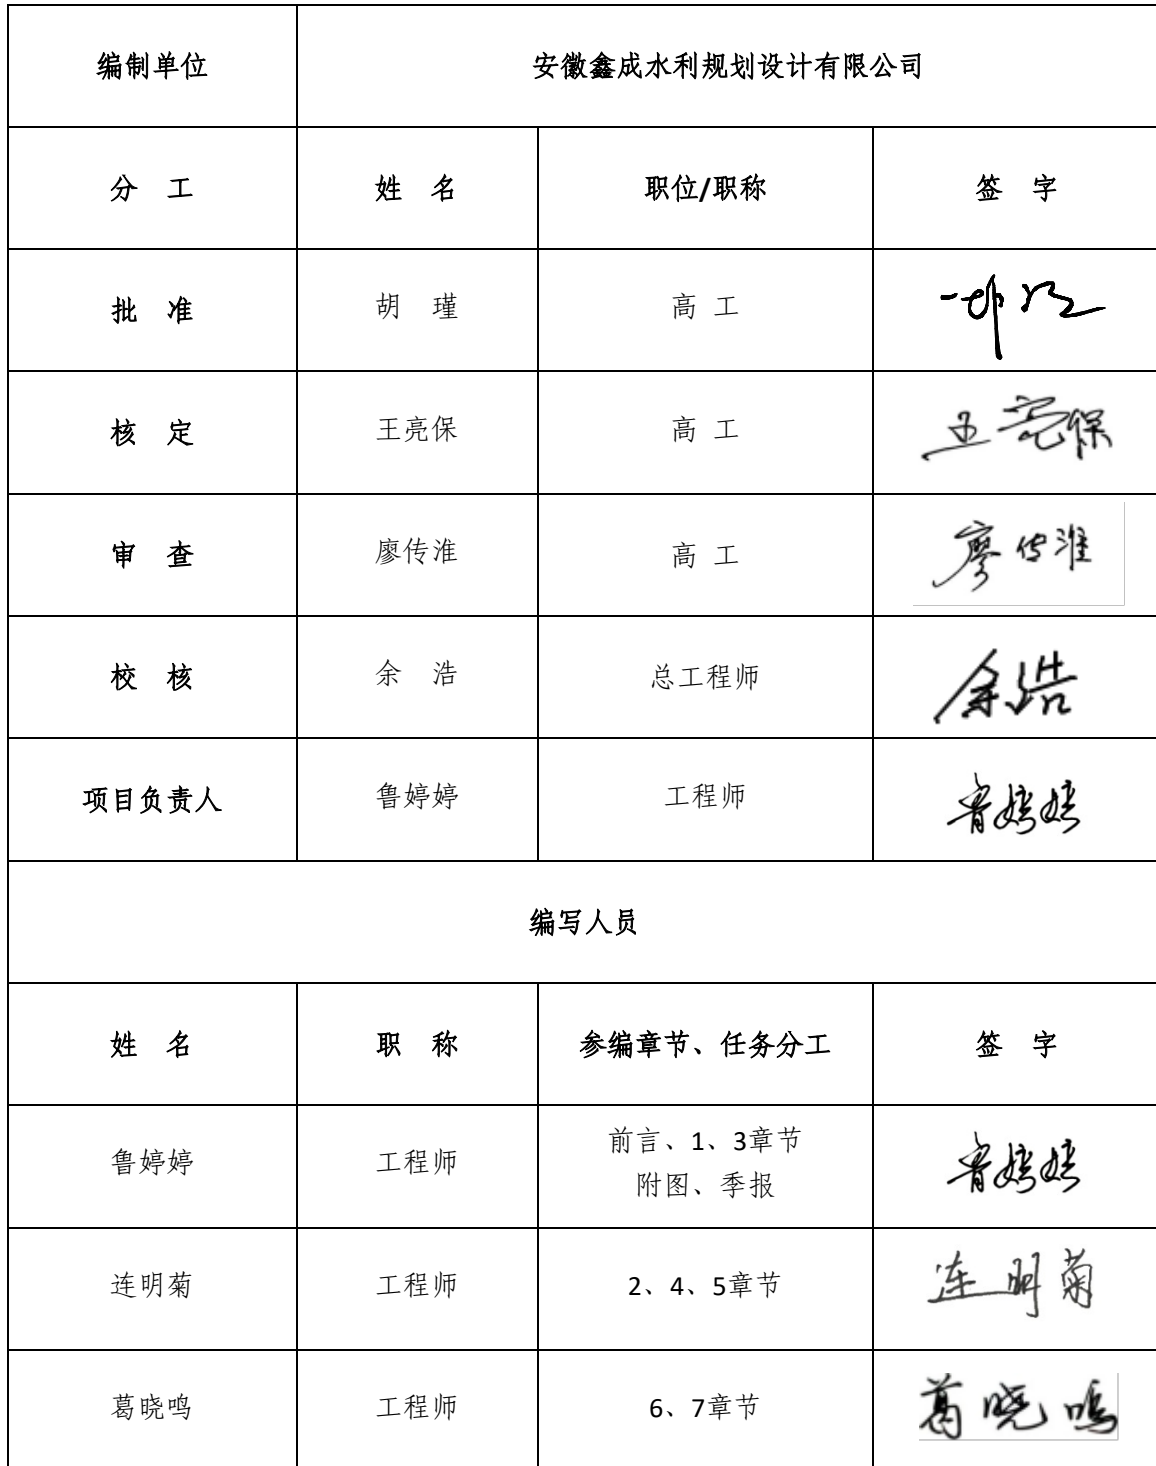 编制单位 安徽鑫成水利规划设计有限公司
分 工 姓 名 职位/职称 签 字
批 准 胡 瑾 高 工
核 定 王亮保 高 工 王亮保
审 查 廖传淮 高 工 廖传淮
校 核 余 浩 总工程师 余浩
项目负责人 鲁婷婷 工程师 鲁婷婷
编写人员
姓 名 职 称 参编章节、任务分工 签 字
鲁婷婷 工程师 前言、1、3章节 鲁婷婷
附图、季报
连明菊 工程师 2、4、5章节 连明菊
葛晓鸣 工程师 6、7章节 葛晓鸣